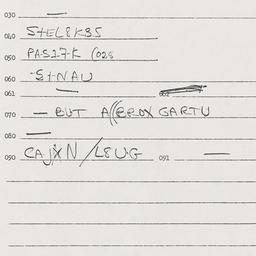 030 —
040 STEL8K35
050 PAS17-K (028
060 -S1NAU
061 —
070 — BUT A((EROX GARTU
080 —
090 CAJXN/L8UG 091 —